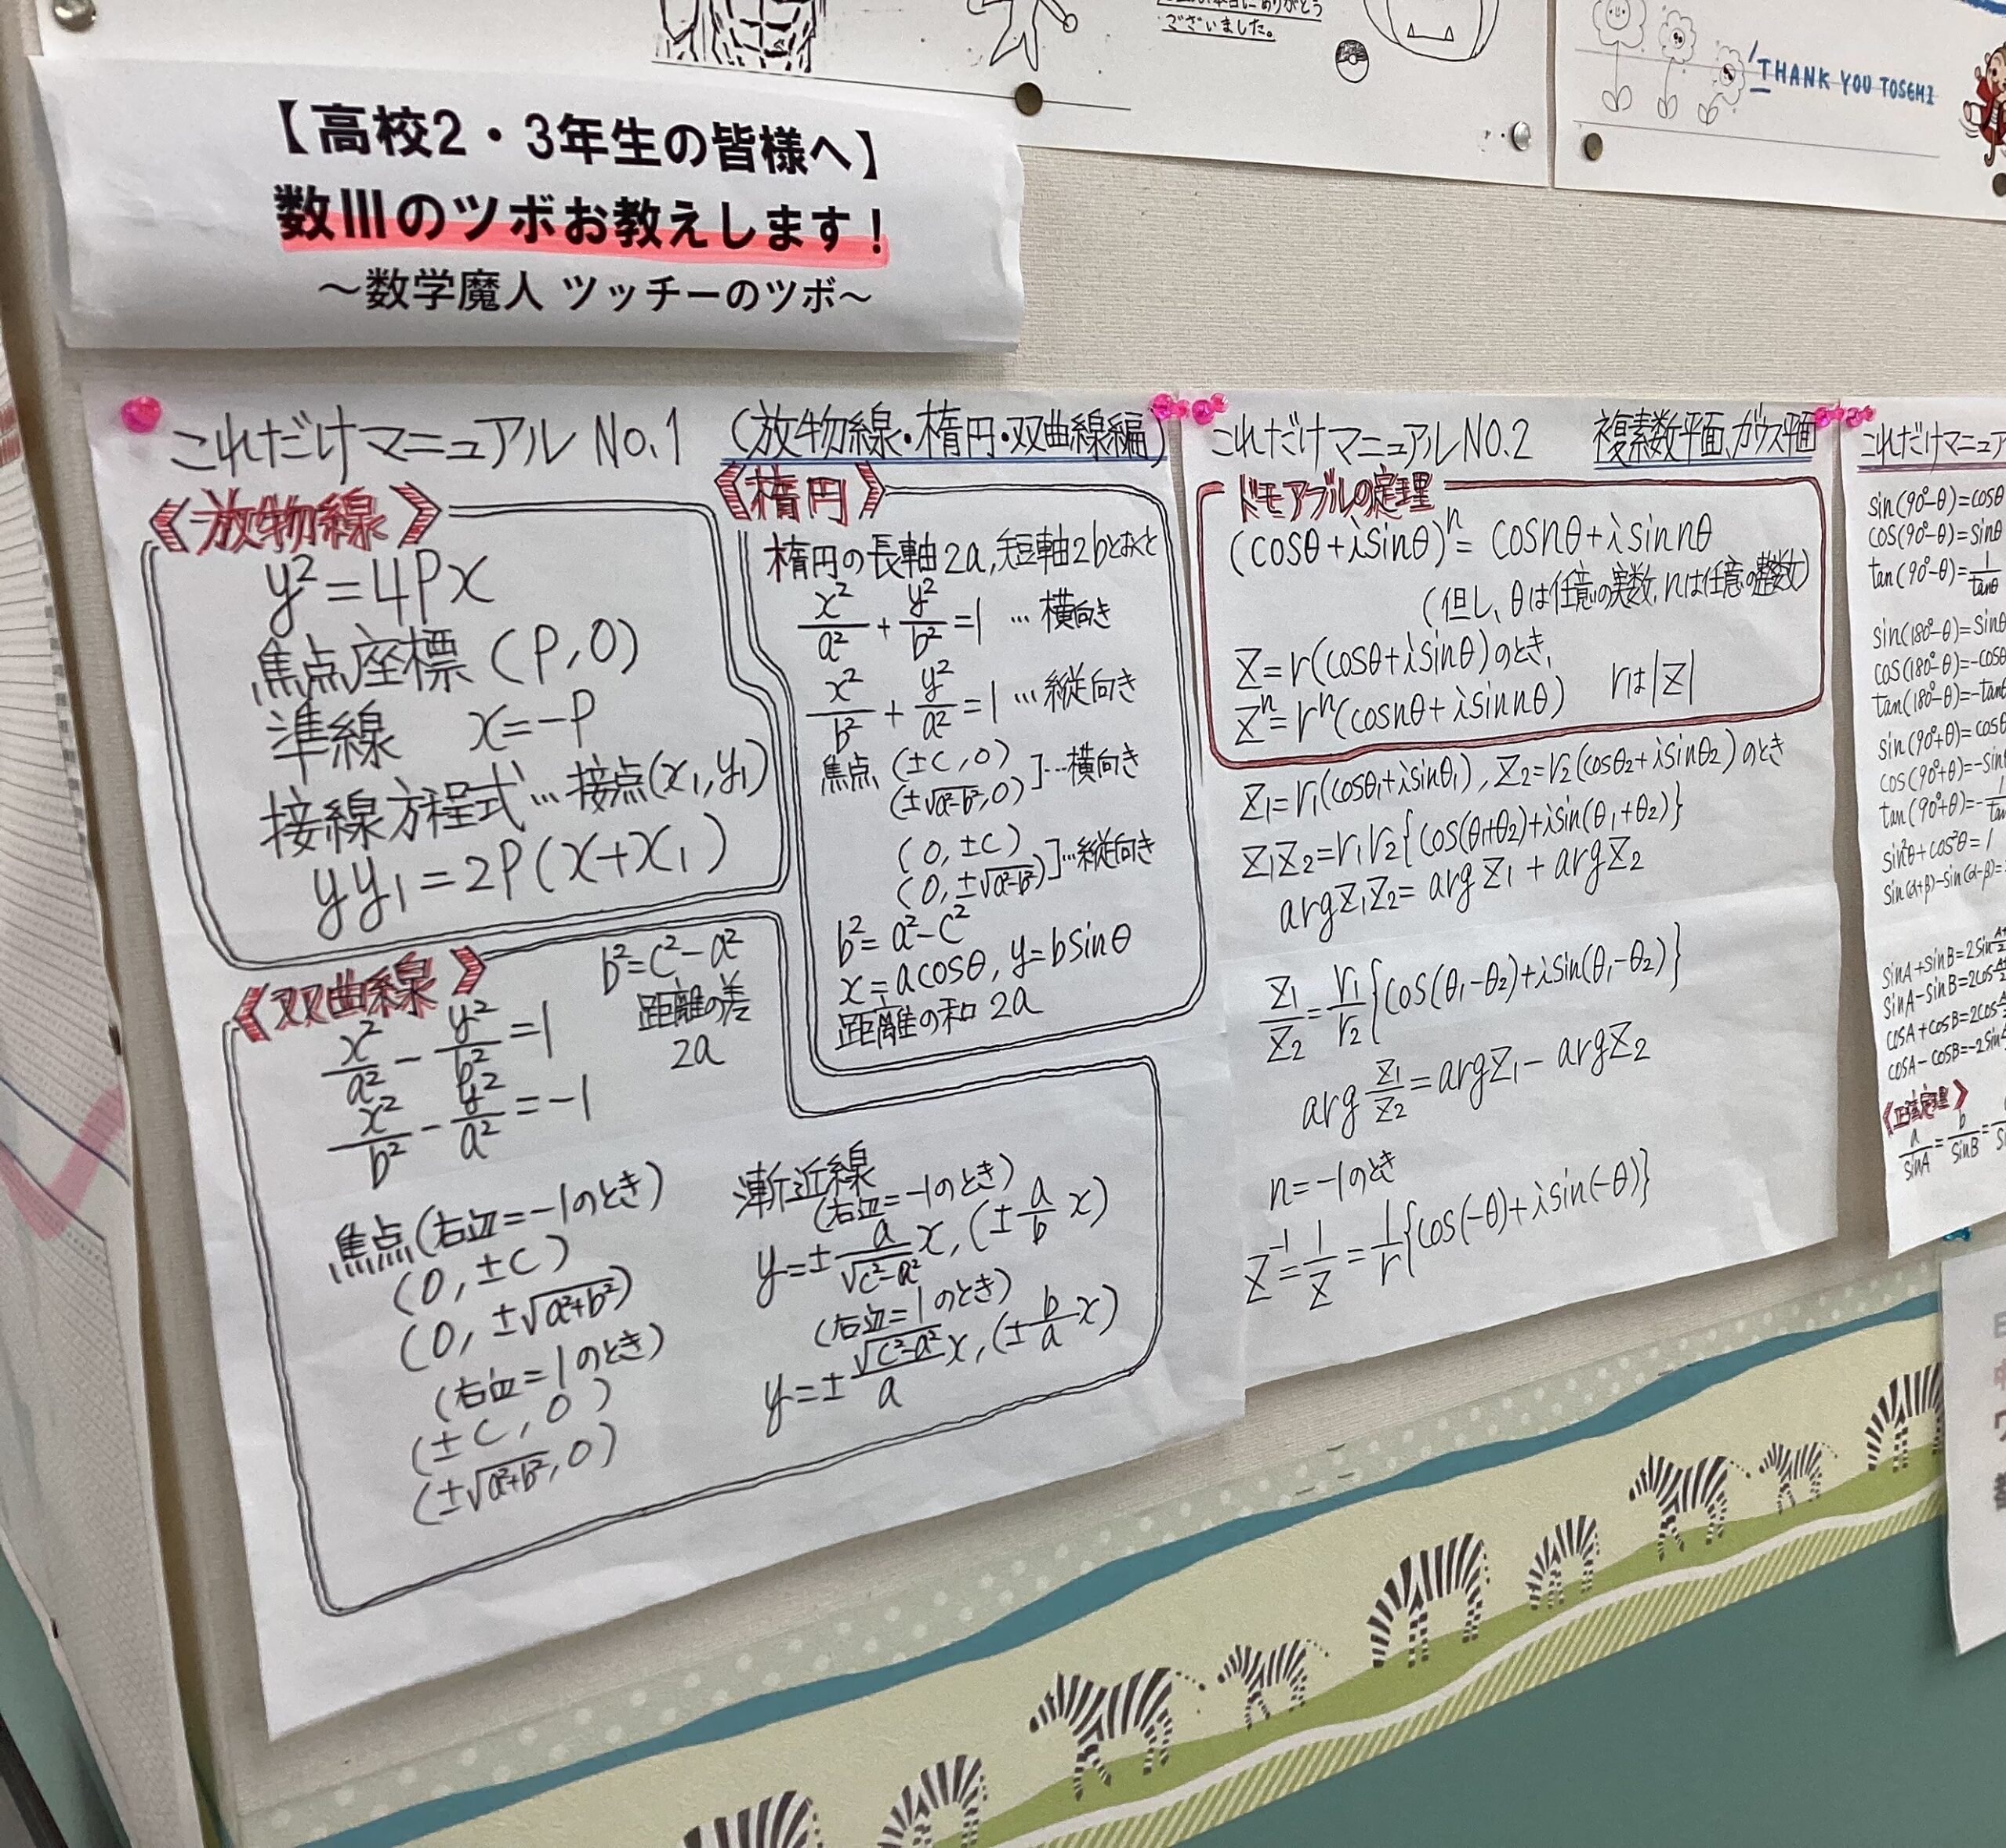 ございました。
THANK YOU TOSEMI
【高校2・3年生の皆様へ】
数IIIのツボお教えします!
～数学魔人 ツッチーのツボ～
これだけマニュアル No.1 (放物線・楕円・双曲線編)
《放物線》
y²=4Px
焦点座標 (P,0)
準線 x=-P
接線方程式…接点(x₁,y₁)
yy₁=2P(x+x₁)
《楕円》
楕円の長軸2a,短軸2bとおくと
x²/a²+y²/b²=1 …横向き
x²/b²+y²/a²=1 …縦向き
焦点 (±c,0)
(±√a²-b²,0)]…横向き
(0,±c)
(0,±√a²-b²)]…縦向き
b²=a²-c²
x=acosθ, y=bsinθ
距離の和 2a
《双曲線》
x²/a²-y²/b²=1
x²/b²-y²/a²=-1
b²=c²-a²
距離の差
2a
焦点(右辺=-1のとき)
(0,±c)
(0,±√a²+b²)
(右辺=1のとき)
(±c,0)
(±√a²+b²,0)
漸近線
(右辺=-1のとき)
y=±a/√c²-a² x,(±a/b x)
(右辺=1のとき)
y=±√c²-a²/a x,(±b/a x)
これだけマニュアルNO.2 複素数平面,ガウス平面
ドモアブルの定理
(cosθ+isinθ)ⁿ=cosnθ+isinnθ
(但し、θは任意の実数,nは任意の整数)
Z=r(cosθ+isinθ)のとき,
Zⁿ=rⁿ(cosnθ+isinnθ) rは|Z|
Z₁=r₁(cosθ₁+isinθ₁),Z₂=r₂(cosθ₂+isinθ₂)のとき
Z₁Z₂=r₁r₂{cos(θ₁+θ₂)+isin(θ₁+θ₂)}
argZ₁Z₂=argZ₁+argZ₂
Z₁/Z₂=r₁/r₂{cos(θ₁-θ₂)+isin(θ₁-θ₂)}
arg Z₁/Z₂=argZ₁-argZ₂
n=-1のとき
Z⁻¹=1/Z=1/r{cos(-θ)+isin(-θ)}
これだけマニュア
sin(90°-θ)=cosθ
cos(90°-θ)=sinθ
tan(90°-θ)=1/tanθ
sin(180°-θ)=sinθ
cos(180°-θ)=-cosθ
tan(180°-θ)=-tanθ
sin(90°+θ)=cosθ
cos(90°+θ)=-sin
tan(90°+θ)=-1/tan
sin²θ+cos²θ=1
sin(α+β)-sin(α-β)=
sinA+sinB=2sin
sinA-sinB=2cos
cosA+cosB=2cos
cosA-cosB=-2sin
《正弦定理》
a/sinA=b/sinB=